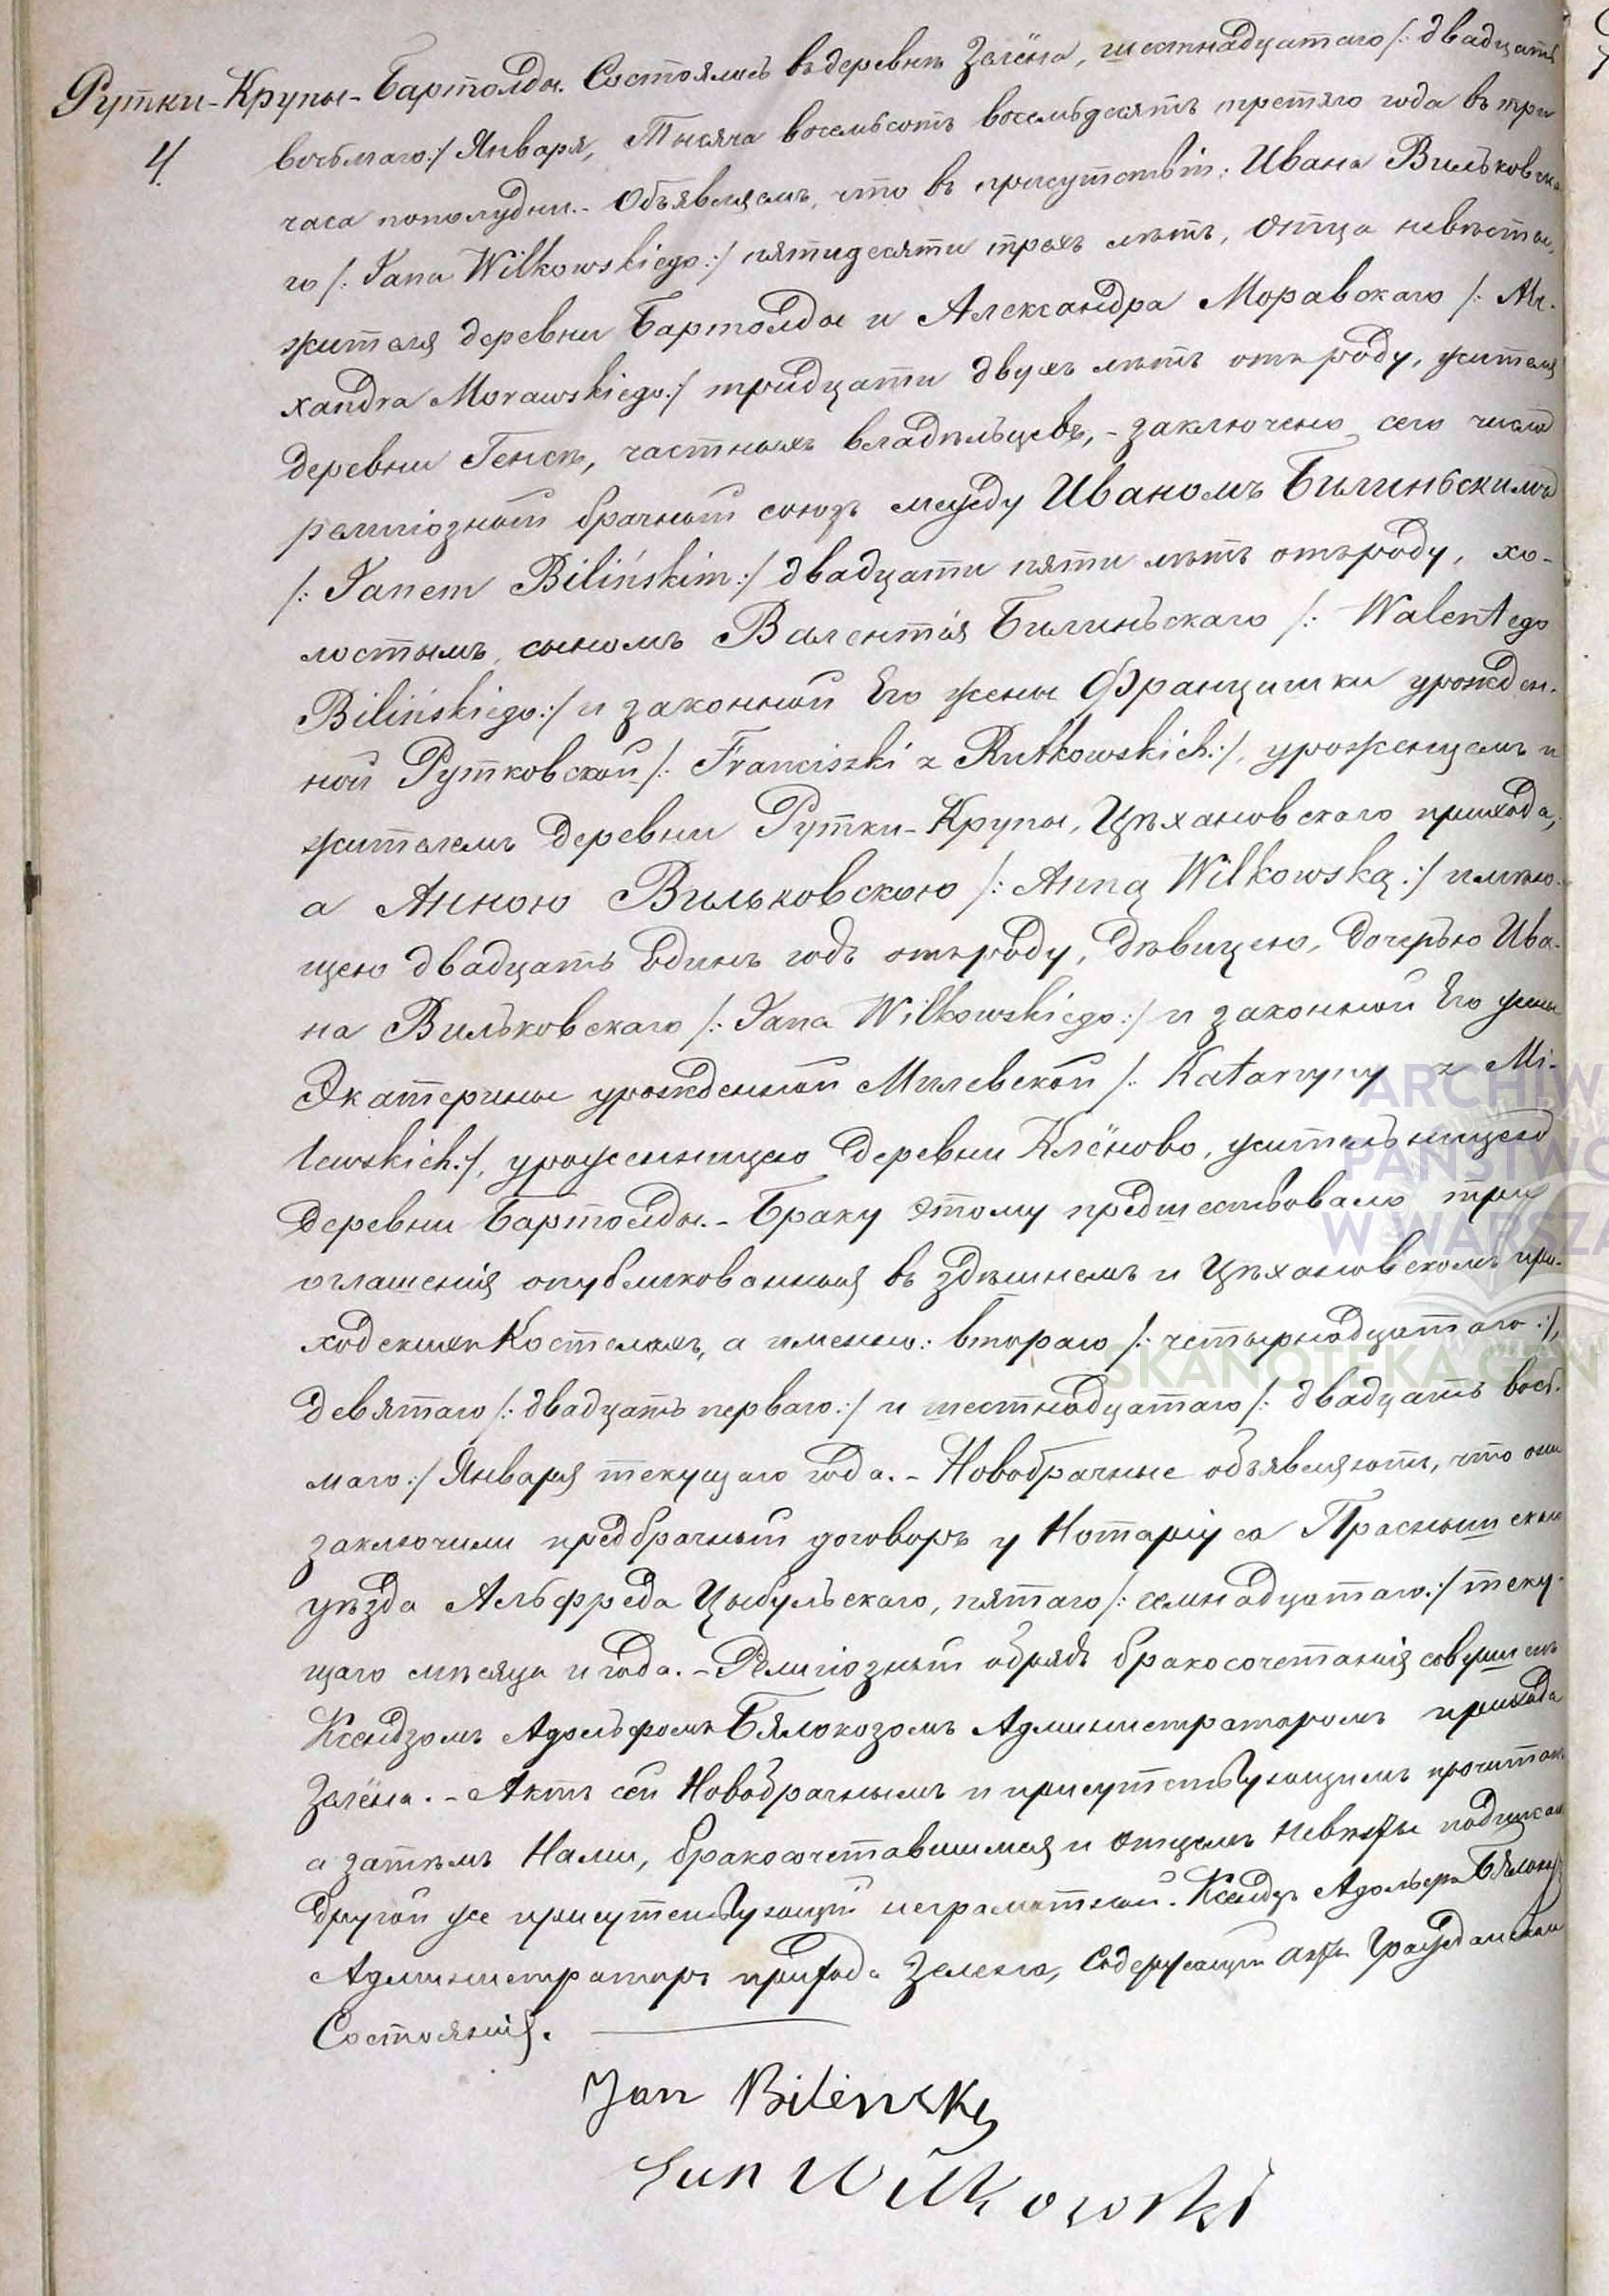 Рутки-Крупы-Бартолды. Состоялось въ деревнѣ Залёна, шестнадцатаго /: двадцать
4. восьмаго :/ Января, Тысяча восемьсотъ восемьдесятъ третяго года въ три
часа пополудни. - Объявляемъ, что въ присутствіи: Ивана Вильковска-
го /: Jana Wilkowskiego :/ пятидесяти трехъ лѣтъ, отца невѣсты,
жителя деревни Бартолды и Александра Моравскаго /: Ale-
xandra Morawskiego :/ тридцати двухъ лѣтъ отъ роду, жителя
деревни Генсѣ, частныхъ владѣльцевъ, - заключено сего числа
религіозный брачный союзъ между Иваномъ Билиньскимъ
/: Janem Bilińskim :/ двадцати пяти лѣтъ отъ роду, хо-
лостымъ, сыномъ Валентія Билиньскаго /: Walentego
Bilińskiego :/ и законной Его жены Францишки урожден-
ной Рутковской /: Franciszki z Rutkowskich :/, уроженцемъ и
жителемъ деревни Рутки-Крупы, Цѣхановскаго прихода,
а Анною Вильковскою /: Anną Wilkowską :/ имѣю-
щею двадцать одинъ годъ отъ роду, дѣвицею, дочерью Ива-
на Вильковскаго /: Jana Wilkowskiego :/ и законной Его жены
Экатерины урожденной Милевской /: Katarzyny z Mi-
lewskich :/, уроженницею деревни Клёново, жительницею
деревни Бартолды. - Браку этому предшествовало три
оглашенія опубликованныя въ здѣшнемъ и Цѣхановскомъ при-
ходскихъ Костелахъ, а именно: втораго /: четырнадцатаго :/,
девятаго /: двадцать перваго :/ и шестнадцатаго /: двадцать вось-
маго :/ Января текущаго года. - Новобрачные объявляютъ, что они
заключили предбрачный договоръ у Нотаріуса Праснышскаго
уѣзда Альфреда Цыбульскаго, пятаго /: семнадцатаго :/ теку-
щаго мѣсяца и года. - Религіозный обрядъ бракосочетанія совершенъ
Ксендзомъ Адольфомъ Бялокозомъ Администраторомъ прихода
Залёна. - Актъ сей Новобрачнымъ и присутствующимъ прочитанъ
а затѣмъ Нами, бракосочетавшимися и отцемъ невѣсты подписанъ
другой же присутствующій неграмотный. Ксендзъ Адольфъ Бялокозъ
Администраторъ прихода Зелена, содержащій акты Гражданскаго
Состоянія.
Jan Bilińsky
Jan Wilkowski
ARCHIW
PAŃSTWO
W WARSZA
SKANOTEKA.GEN